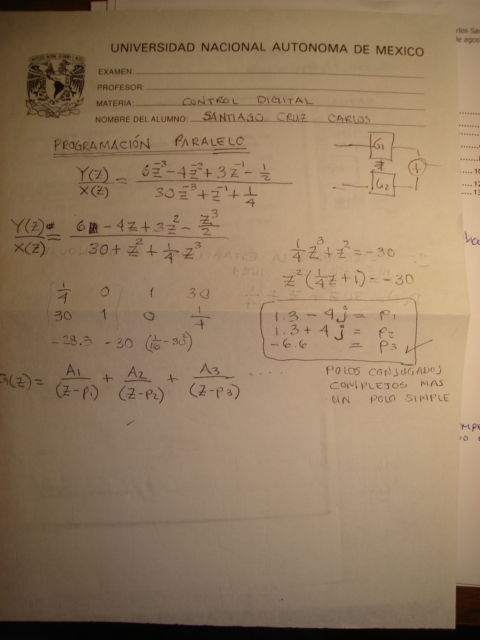 UNIVERSIDAD NACIONAL AUTONOMA DE MEXICO
EXAMEN:
PROFESOR:
MATERIA CONTROL DIGITAL
NOMBRE DEL ALUMNO: SANTIAGO CRUZ CARLOS
PROGRAMACIÓN PARALELO
G1
G2
+
Y(z)/X(z) = (6z^-3 - 4z^-2 + 3z^-1 - 1/2) / (30z^-3 + z^-1 + 1/4)
Y(z)/X(z) = (6 - 4z + 3z^2 - z^3/2) / (30 + z^2 + 1/4 z^3)
1/4 z^3 + z^2 = -30
z^2(1/4 z + 1) = -30
1/4 0 1 30
30 1 0 1/4
-28.3 -30 (1/16 - 30)
1.3 - 4j = P1
1.3 + 4j = P2
-6.6 = P3
G(z) = A1/(z-p1) + A2/(z-p2) + A3/(z-p3) ....
POLOS CONJUGADOS
COMPLEJOS MAS
UN POLO SIMPLE